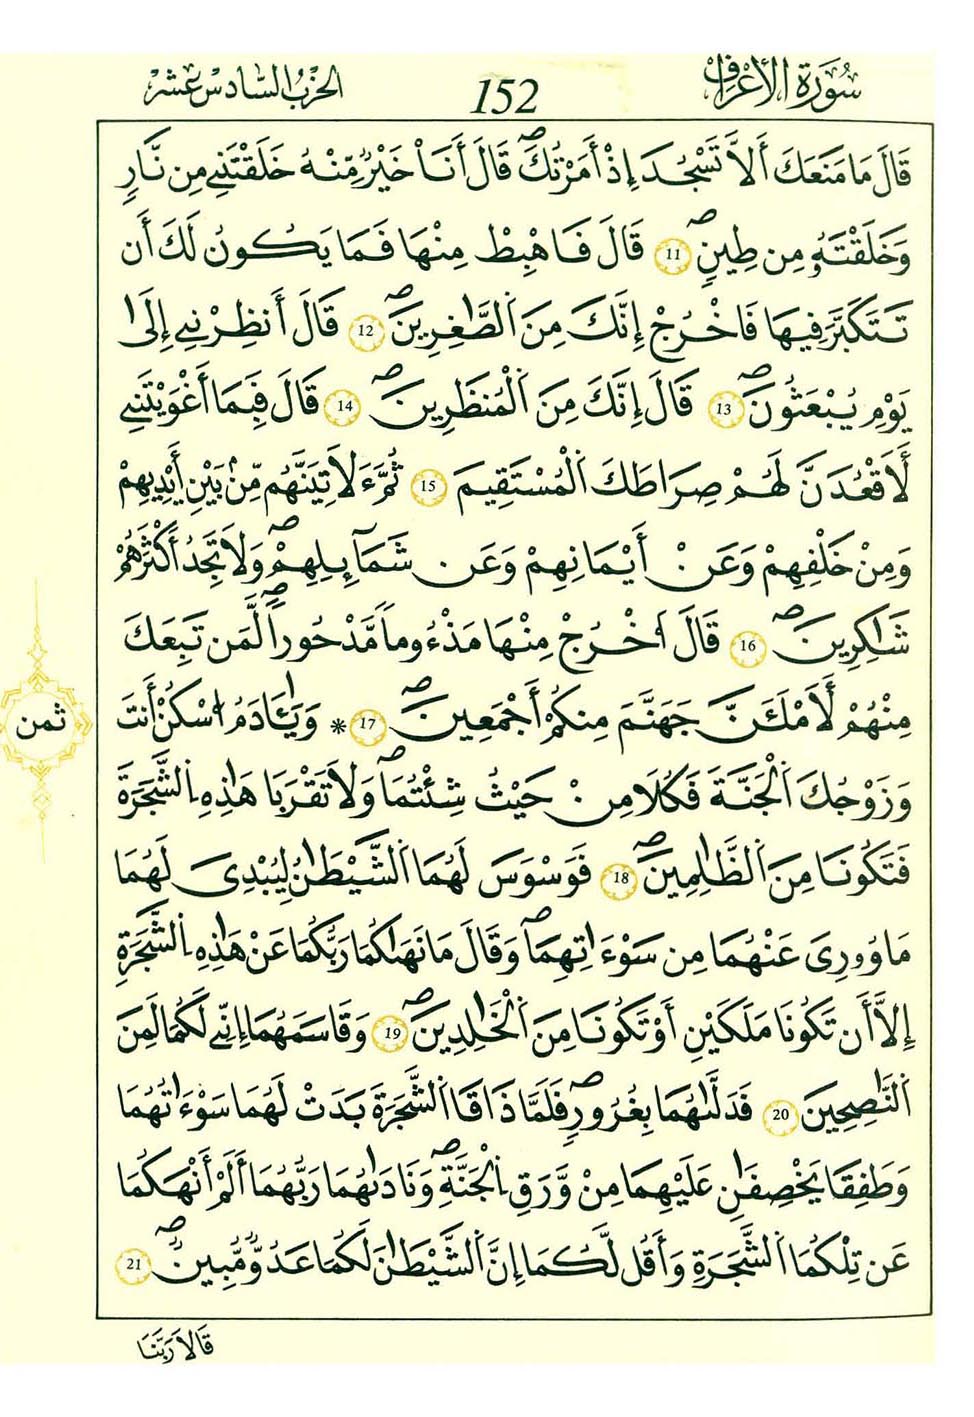 سُورَةُ الأَعْرَافِ
152
الحِزْبُ السَّادِسَ عَشَرَ
قَالَ مَا مَنَعَكَ أَلَّا تَسْجُدَ إِذْ أَمَرْتُكَۖ قَالَ أَنَا۠ خَيْرٌ مِّنْهُ خَلَقْتَنِے مِن نَّارٖ
وَخَلَقْتَهُۥ مِن طِينٖۖ 11 قَالَ فَاهْبِطْ مِنْهَا فَمَا يَكُونُ لَكَ أَن
تَتَكَبَّرَ فِيهَا فَاخْرُجْ إِنَّكَ مِنَ اَ۬لصَّٰغِرِينَۖ 12 قَالَ أَنظِرْنِے إِلَىٰ
يَوْمِ يُبْعَثُونَۖ 13 قَالَ إِنَّكَ مِنَ اَ۬لْمُنظَرِينَۖ 14 قَالَ فَبِمَا أَغْوَيْتَنِے
لَأَقْعُدَنَّ لَهُمْ صِرَاطَكَ اَ۬لْمُسْتَقِيمَ 15 ثُمَّ ءَلَاتِيَنَّهُم مِّنۢ بَيْنِ أَيْدِيهِمْ
وَمِنْ خَلْفِهِمْ وَعَنْ أَيْمَانِهِمْ وَعَن شَمَآئِلِهِمْۖ وَلَا تَجِدُ أَكْثَرَهُمْ
شَٰكِرِينَۖ 16 قَالَ اَ۟خْرُجْ مِنْهَا مَذْءُوماٗ مَّدْحُوراٗۖ لَّمَن تَبِعَكَ
مِنْهُمْ لَأَمْلَأَنَّ جَهَنَّمَ مِنكُمْ أَجْمَعِينَۖ 17 * وَيَٰٓـَٔادَمُ اُ۟سْكُنْ أَنتَ
وَزَوْجُكَ اَ۬لْجَنَّةَ فَكُلَا مِنْ حَيْثُ شِئْتُمَاۖ وَلَا تَقْرَبَا هَٰذِهِ اِ۬لشَّجَرَةَ
فَتَكُونَا مِنَ اَ۬لظَّٰلِمِينَۖ 18 فَوَسْوَسَ لَهُمَا اَ۬لشَّيْطَٰنُ لِيُبْدِىَ لَهُمَا
مَا وُۥرِىَ عَنْهُمَا مِن سَوْءَٰتِهِمَاۖ وَقَالَ مَا نَهَىٰكُمَا رَبُّكُمَا عَنْ هَٰذِهِ اِ۬لشَّجَرَةِ
إِلَّا أَن تَكُونَا مَلَكَيْنِ أَوْ تَكُونَا مِنَ اَ۬لْخَٰلِدِينَۖ 19 وَقَاسَمَهُمَا إِنِّے لَكُمَا لَمِنَ
اَ۬لنَّٰصِحِينَ 20 فَدَلَّىٰهُمَا بِغُرُورٖۖ فَلَمَّا ذَاقَا اَ۬لشَّجَرَةَ بَدَتْ لَهُمَا سَوْءَٰتُهُمَا
وَطَفِقَا يَخْصِفَٰنِ عَلَيْهِمَا مِنْ وَّرَقِ اِ۬لْجَنَّةِۖ وَنَادَىٰهُمَا رَبُّهُمَا أَلَمْ أَنْهَكُمَا
عَن تِلْكُمَا اَ۬لشَّجَرَةِ وَأَقُل لَّكُمَا إِنَّ اَ۬لشَّيْطَٰنَ لَكُمَا عَدُوّٞ مُّبِينٞۖ 21
ثمن
قَالَا رَبَّنَا